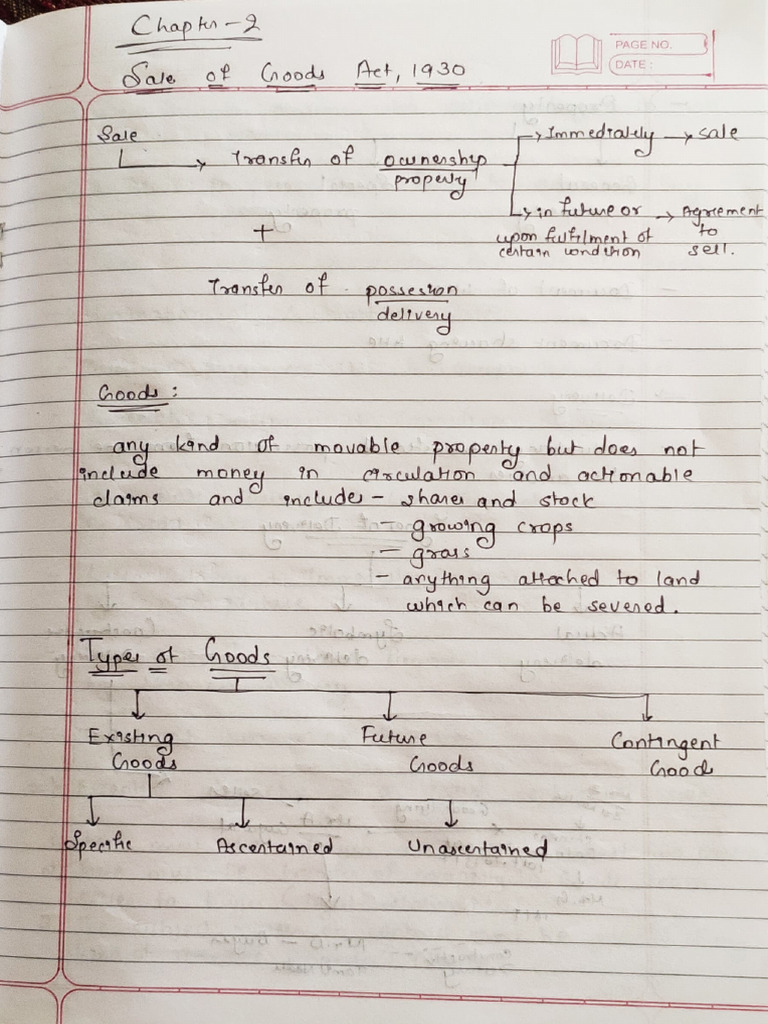 Chapter - 2
PAGE NO.
DATE :
Sale of Goods Act, 1930
Sale
→ Transfer of ownership
property
→ Immediately → sale
→ in future or → Agreement
upon fulfilment of to
certain condition sell.
+
Transfer of possession
delivery
Goods :
any kind of movable property but does not
include money in circulation and actionable
claims and include - shares and stock
- growing crops
- grass
- anything attached to land
which can be severed.
Types of Goods
Existing Future Contingent
Goods Goods Good
Specific Ascertained Unascertained